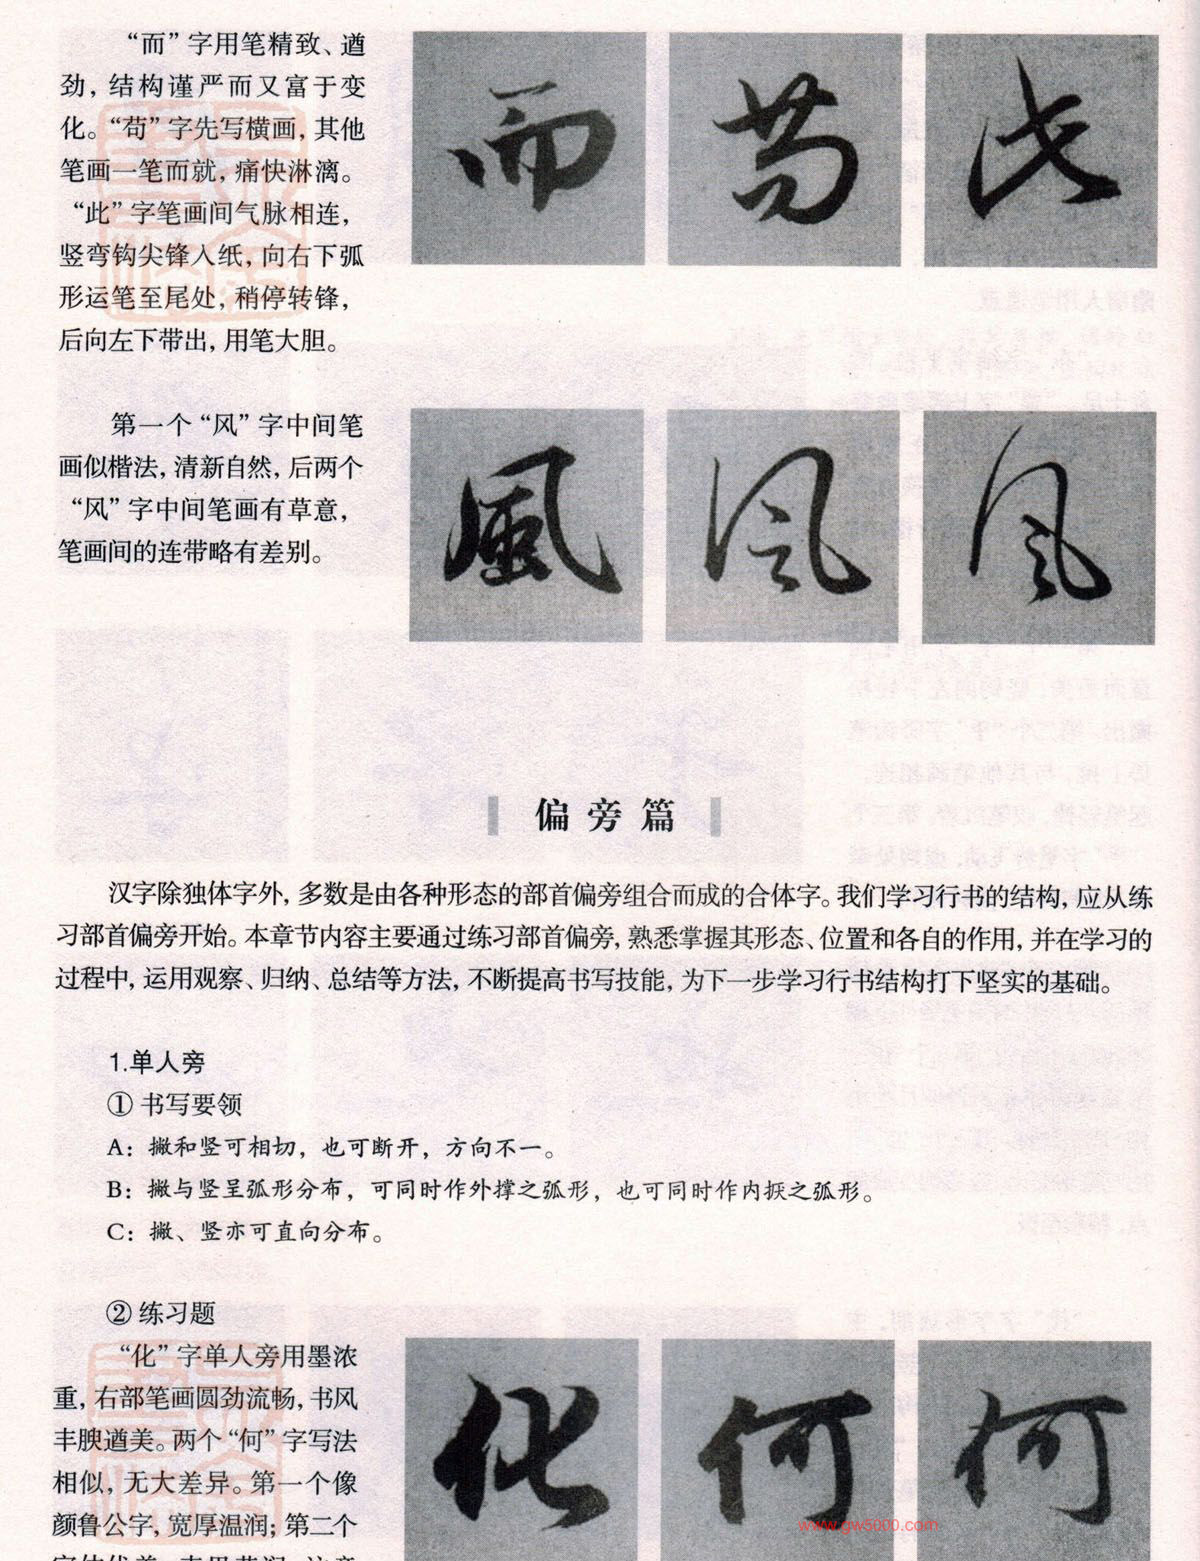 “而”字用笔精致、遒
劲，结构谨严而又富于变
化。“苟”字先写横画，其他
笔画一笔而就，痛快淋漓。
“此”字笔画间气脉相连，
竖弯钩尖锋入纸，向右下弧
形运笔至尾处，稍停转锋，
后向左下带出，用笔大胆。
而 苟 此
第一个“风”字中间笔
画似楷法，清新自然，后两个
“风”字中间笔画有草意，
笔画间的连带略有差别。
風 风 风
偏旁篇
汉字除独体字外，多数是由各种形态的部首偏旁组合而成的合体字。我们学习行书的结构，应从练
习部首偏旁开始。本章节内容主要通过练习部首偏旁，熟悉掌握其形态、位置和各自的作用，并在学习的
过程中，运用观察、归纳、总结等方法，不断提高书写技能，为下一步学习行书结构打下坚实的基础。
1.单人旁
① 书写要领
A：撇和竖可相切，也可断开，方向不一。
B：撇与竖呈弧形分布，可同时作外撑之弧形，也可同时作内捩之弧形。
C：撇、竖亦可直向分布。
② 练习题
“化”字单人旁用墨浓
重，右部笔画圆劲流畅，书风
丰腴遒美。两个“何”字写法
相似，无大差异。第一个像
颜鲁公字，宽厚温润；第二个
化 何 何
www.gw5000.com